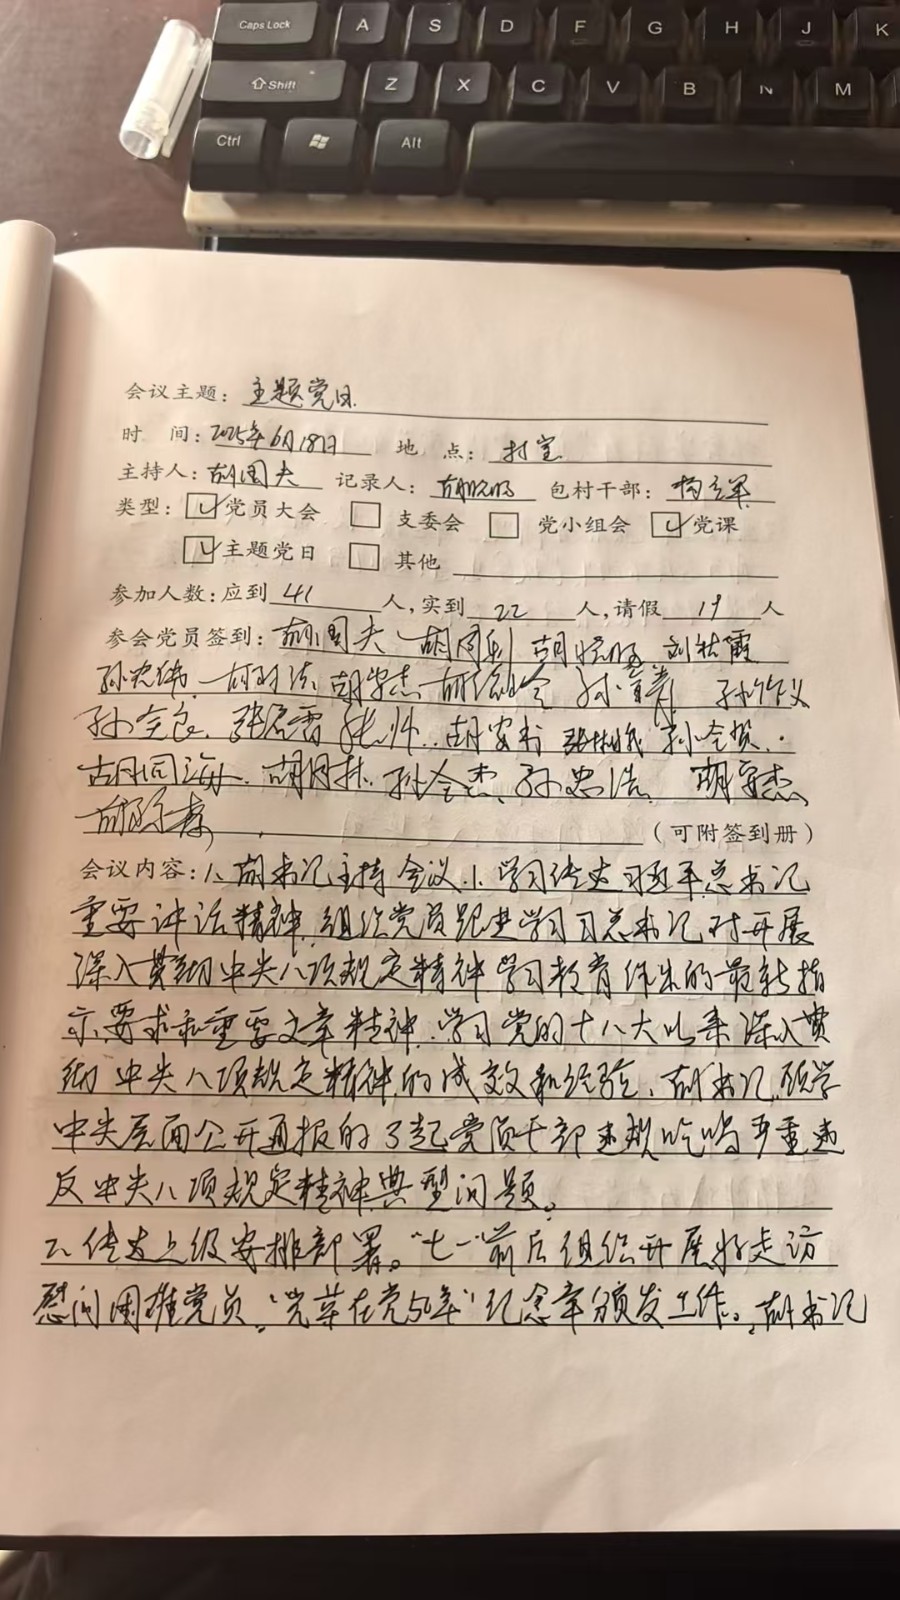 Caps Lock A S D F G H J K
Shift Z X C V B N M
Ctrl Alt
会议主题：主题党日
时 间：2025年6月18日 地 点：村室
主持人：胡国夫 记录人：胡晓鸣 包村干部：
类型：☑党员大会 □支委会 □党小组会 ☑党课
☑主题党日 □其他
参加人数：应到 41 人，实到 22 人，请假 19 人
参会党员签到：胡国夫 胡同利 刘秋霞
孙忠伟 胡安志
孙全良 胡安书 孙全贺
胡同海 孙全杰 孙忠浩 胡宗杰
（可附签到册）
会议内容：1、胡书记主持会议 1、学习传达习近平总书记
重要讲话精神，组织党员跟进学习习总书记对开展
深入贯彻中央八项规定精神学习教育作出的最新指
示要求和重要文章精神，学习党的十八大以来深入贯
彻中央八项规定精神的成效和经验，胡书记领学
中央层面公开通报的3起党员干部违规吃喝严重违
反中央八项规定精神典型问题。
2、传达上级安排部署。“七一”前后组织开展好走访
慰问困难党员，“光荣在党50年”纪念章颁发工作。胡书记